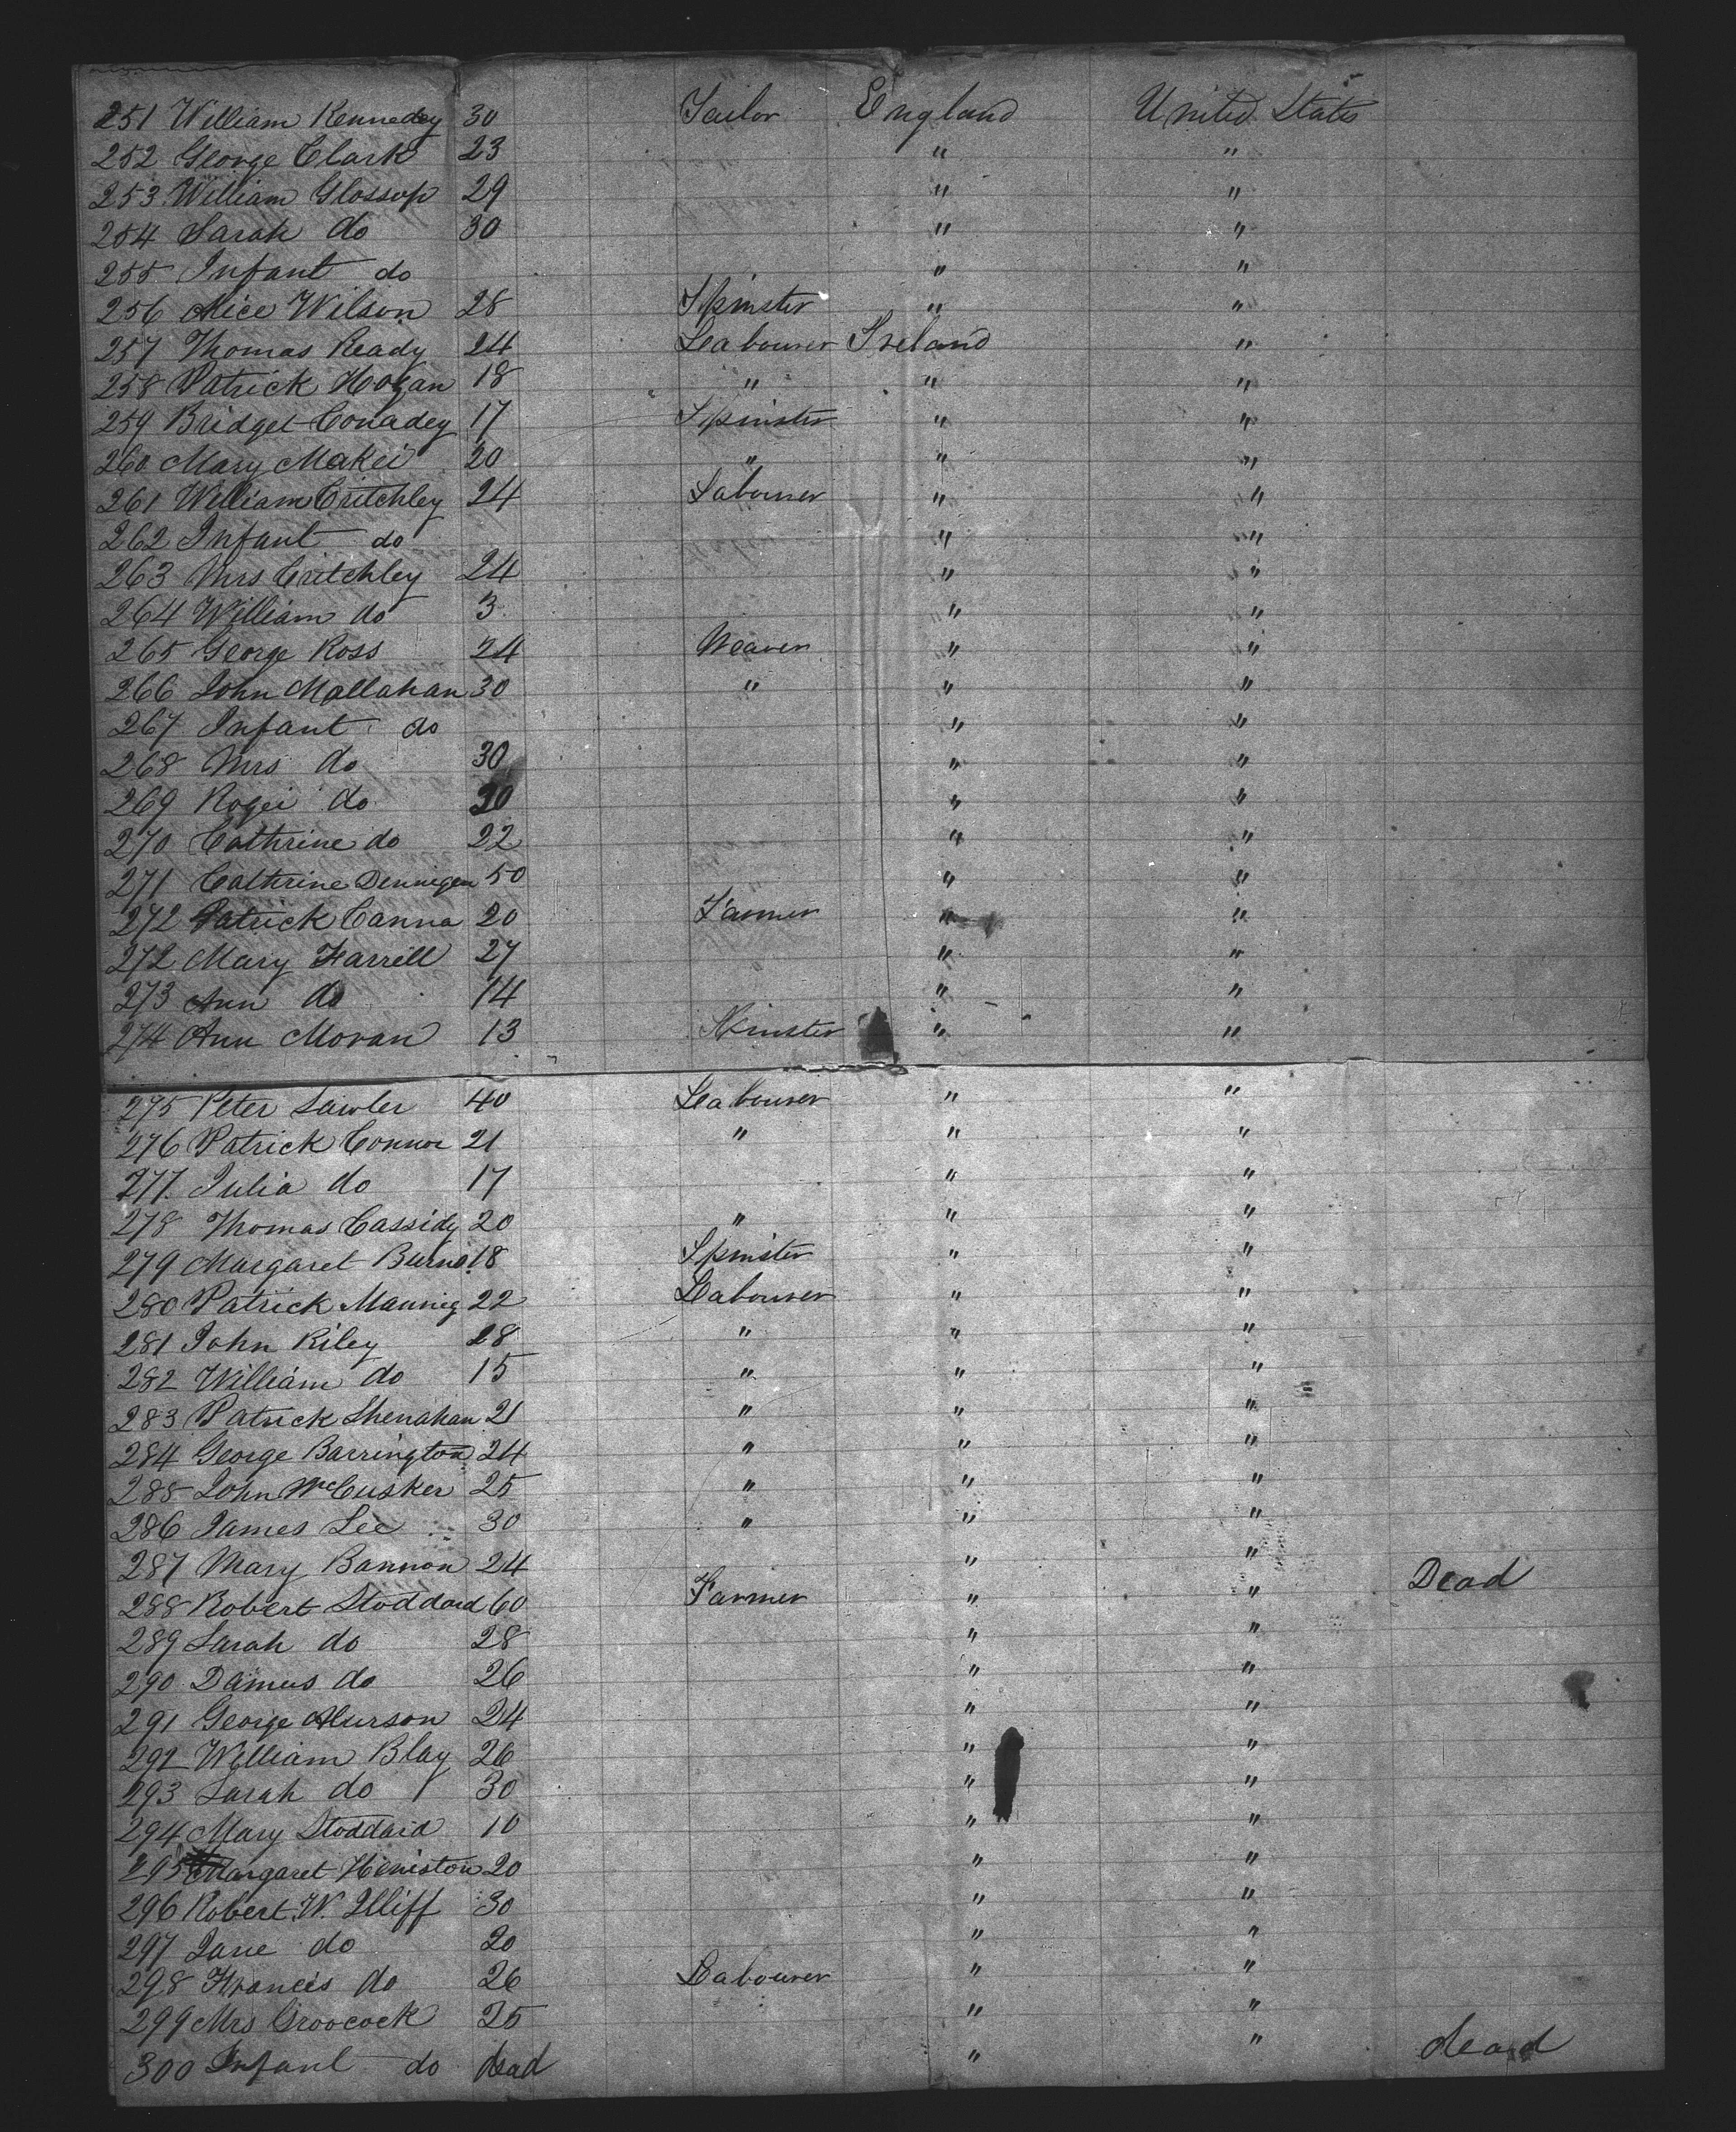 251 William Kennedey 30 Tailor England United States
252 George Clark 23 " "
253 William Glossop 29 " "
254 Sarah do 30 " "
255 Infant do " "
256 Alice Wilson 28 Spinster " "
257 Thomas Ready 24 Labourer Ireland "
258 Patrick Hogan 18 " " "
259 Bridget Conadey 17 Spinster " "
260 Mary Makei 20 " " "
261 William Critchley 24 Labourer " "
262 Infant do " "
263 Mrs Critchley 24 " "
264 William do 3 " "
265 George Ross 24 Weaver " "
266 John Mallahan 30 " " "
267 Infant do " "
268 Mrs do 30 " "
269 do " "
270 Cathrine do 22 " "
271 Cathrine Dennigen 50 " "
272 Patrick Canna 20 Farmer " "
272 Mary Farrell 27 " "
273 Ann do 14 " "
274 Ann Moran 13 Spinster " "
275 Peter Lawler 40 Labourer " "
276 Patrick Connor 21 " " "
277 Julia do 17 " "
278 Thomas Cassidy 20 " " "
279 Margaret 18 Spinster " "
280 Patrick 22 Labourer " "
281 John Riley 28 " " "
282 William do 15 " " "
283 Patrick Shenahan 21 " " "
284 George Barrington 24 " " "
285 John McCusker 25 " " "
286 James Lee 30 " " "
287 Mary Bannon 24 " "
288 Robert Stoddard 60 Farmer " " Dead
289 Sarah do 28 " "
290 do 26 " "
291 George 24 " "
292 William Blay 26 " "
293 Sarah do 30 " "
294 Mary Stoddard 10 " "
295 Margaret Heniston 20 " "
296 Robert W. Illiff 30 " "
297 Jane do 20 " "
298 Francis do 26 Labourer " "
299 Mrs Groocock 25 " "
300 Infant do dead " " dead